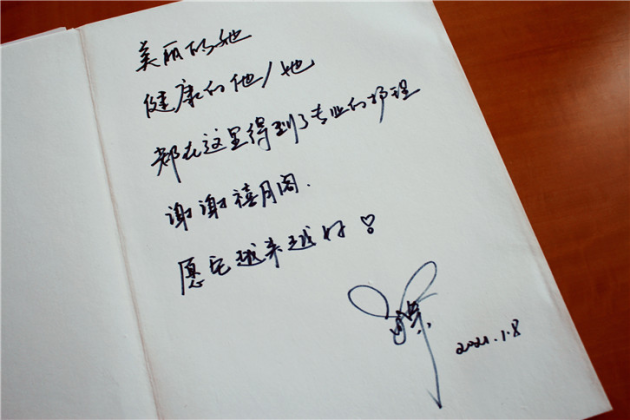 美丽的她
健康的他/她
都在这里得到了专业的护理
谢谢禧月阁.
愿它越来越好
2021.1.8